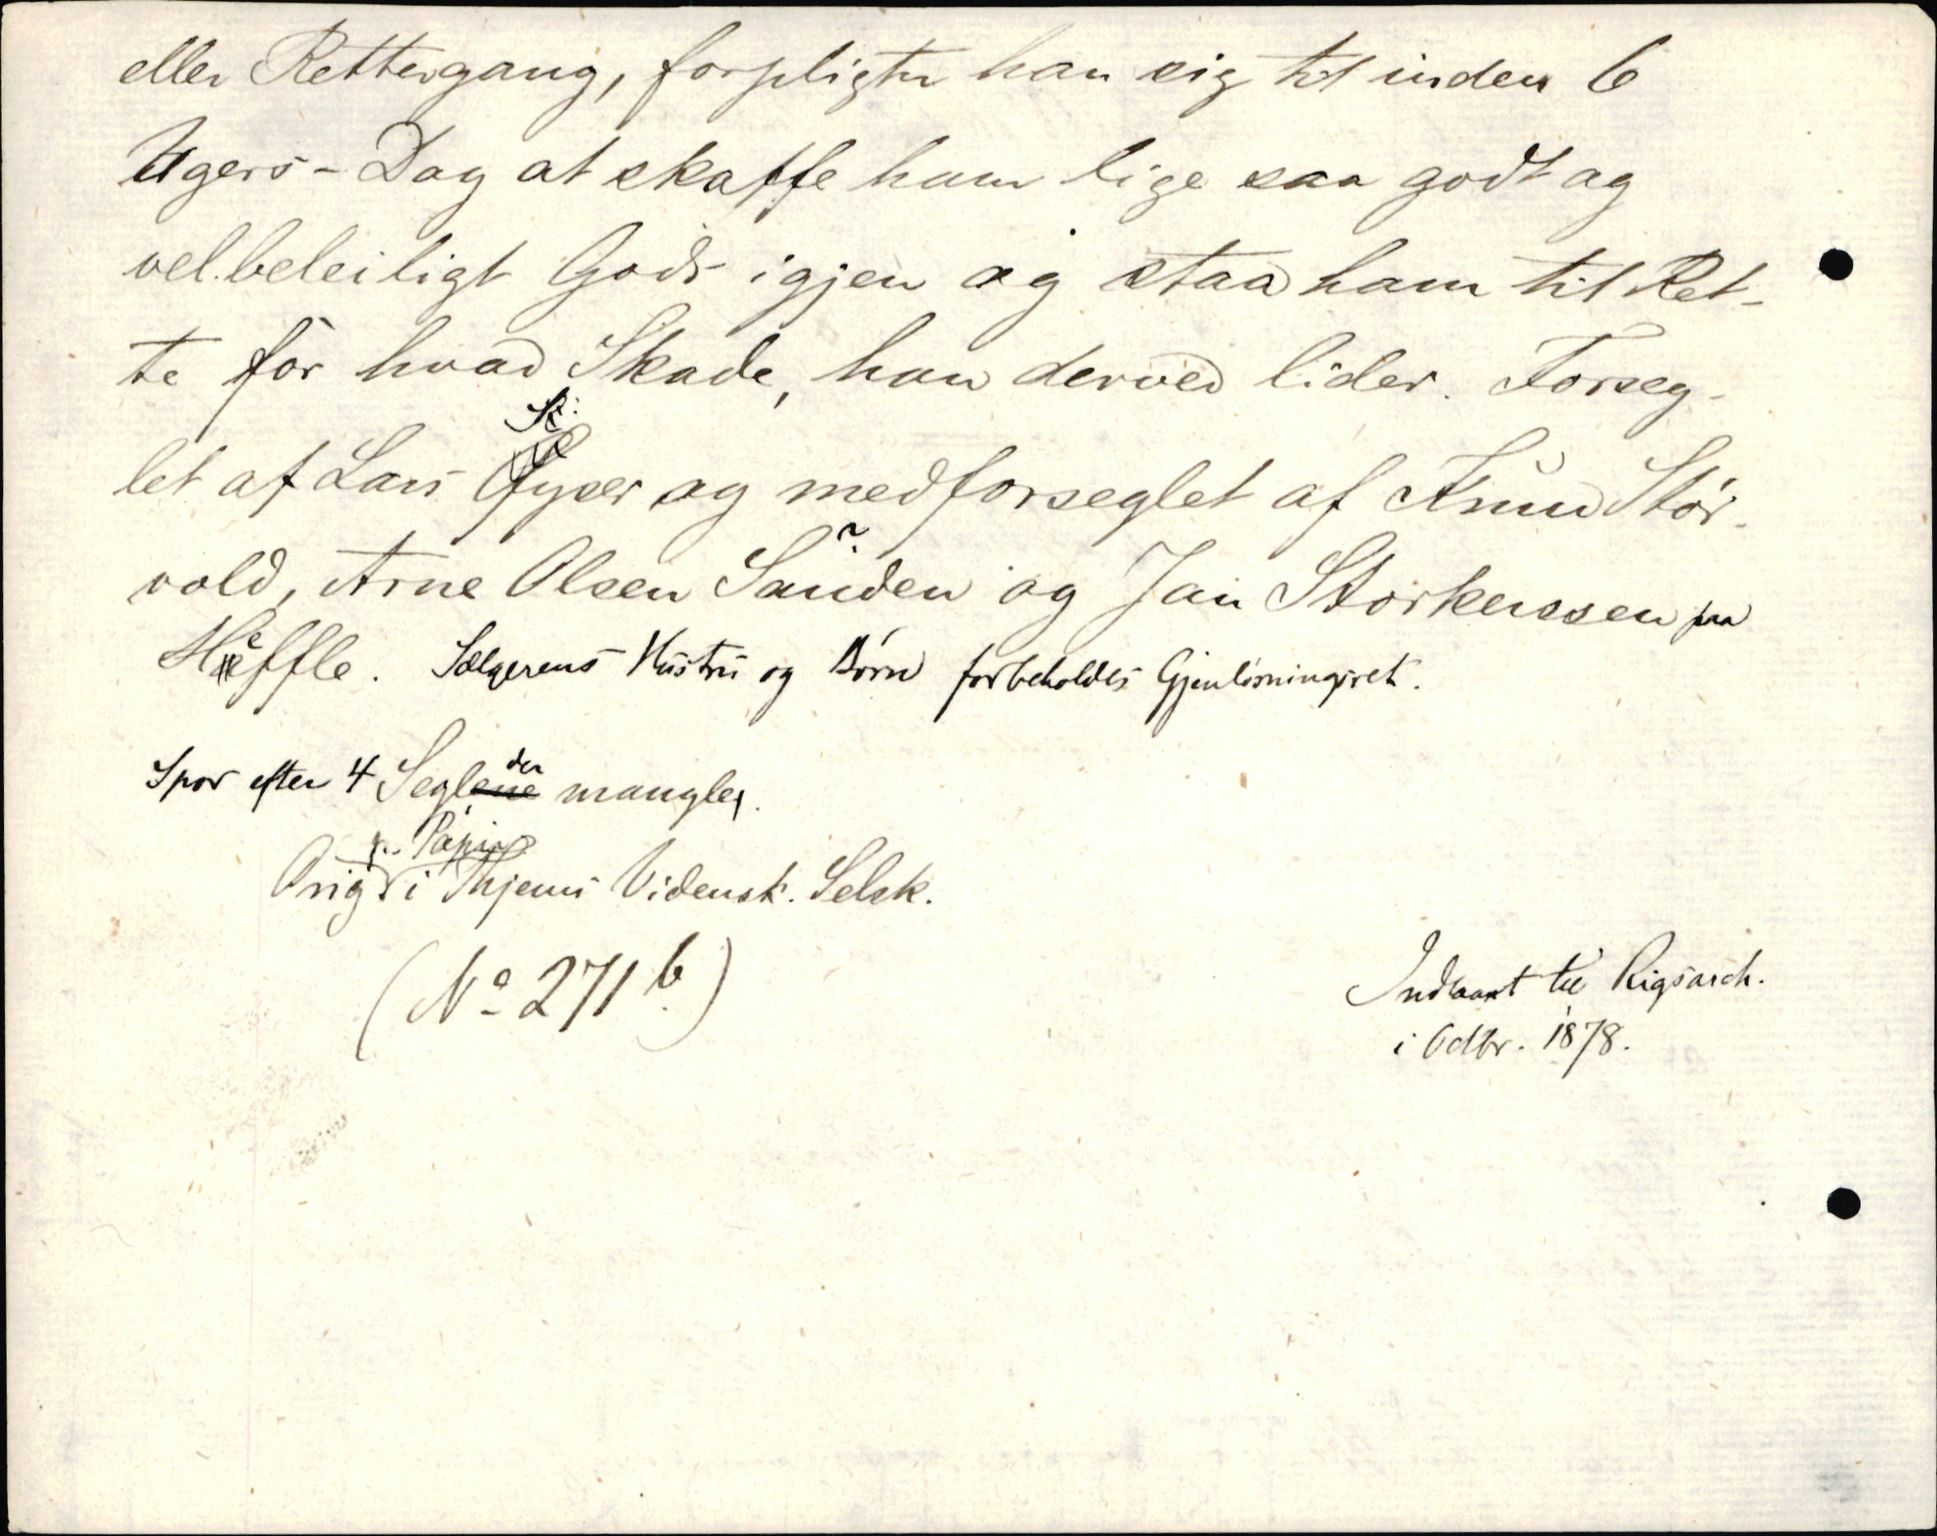 eller Rettergang, forpligter han sig til inden 6
Ugers-Dag at skaffe ham lige saa godt og
velbeleiligt Gods igjen og staa ham til Ret-
te for hvad Skade, han derved lider. Forseg-
let af Lars og medforseglet af Knud Stör-
vold, Arne Olsen Sanden og Jon Storkerssen paa
Heffle. Sælgerens Hustru og Börn forbeholdes Gjenlösningsret.
Spor efter 4 Segl der mangler.
Orig. p. Papir i Thjems Vidensk. Selsk.
(No 271 b.)
Indlaant til Rigsarch.
i Octbr. 1878.